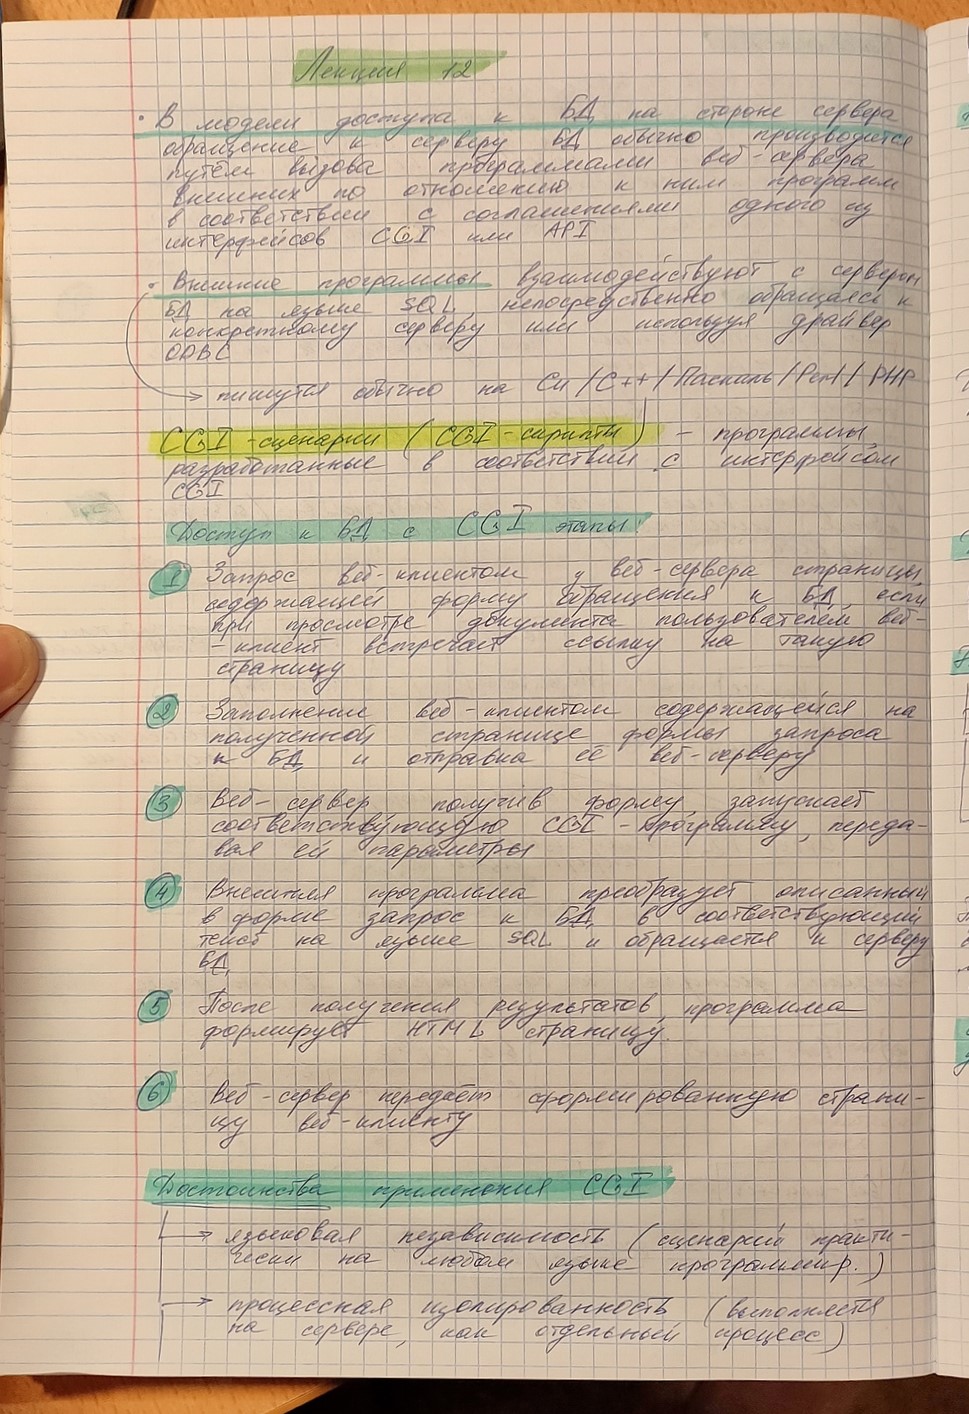 Лекция 12
• В модели доступа к БД на стороне сервера
обращение к серверу БД обычно производится
путём вызова программами веб-сервера
внешних по отношению к ним программ
в соответствии с соглашениями одного из
интерфейсов CGI или API
• Внешние программы взаимодействуют с сервером
БД на языке SQL, непосредственно обращаясь к
конкретному серверу или используя драйвер
ODBC
→ пишутся обычно на Си / C++ / Паскаль / Perl / PHP
CGI-сценарии (CGI-скрипты) – программы,
разработанные в соответствии с интерфейсом
CGI
Доступ к БД с CGI этапы:
1 Запрос веб-клиентом у веб-сервера страницы,
содержащей форму обращения к БД, если
при просмотре документа пользователем веб-
-клиент встречает ссылку на такую
страницу
2 Заполнение веб-клиентом содержащейся на
полученной странице формы запроса
к БД и отправка её веб-серверу
3 Веб-сервер, получив форму, запускает
соответствующую CGI-программу, переда-
вая ей параметры
4 Внешняя программа преобразует описанный
в форме запрос к БД в соответствующий
текст на языке SQL и обращается к серверу
БД
5 После получения результатов, программа
формирует HTML страницу.
6 Веб-сервер передаёт сформированную страни-
цу веб-клиенту
Достоинства применения CGI
→ языковая независимость (сценарий практи-
чески на любом языке программир.)
→ процессная изолированность (выполняется
на сервере, как отдельный процесс)